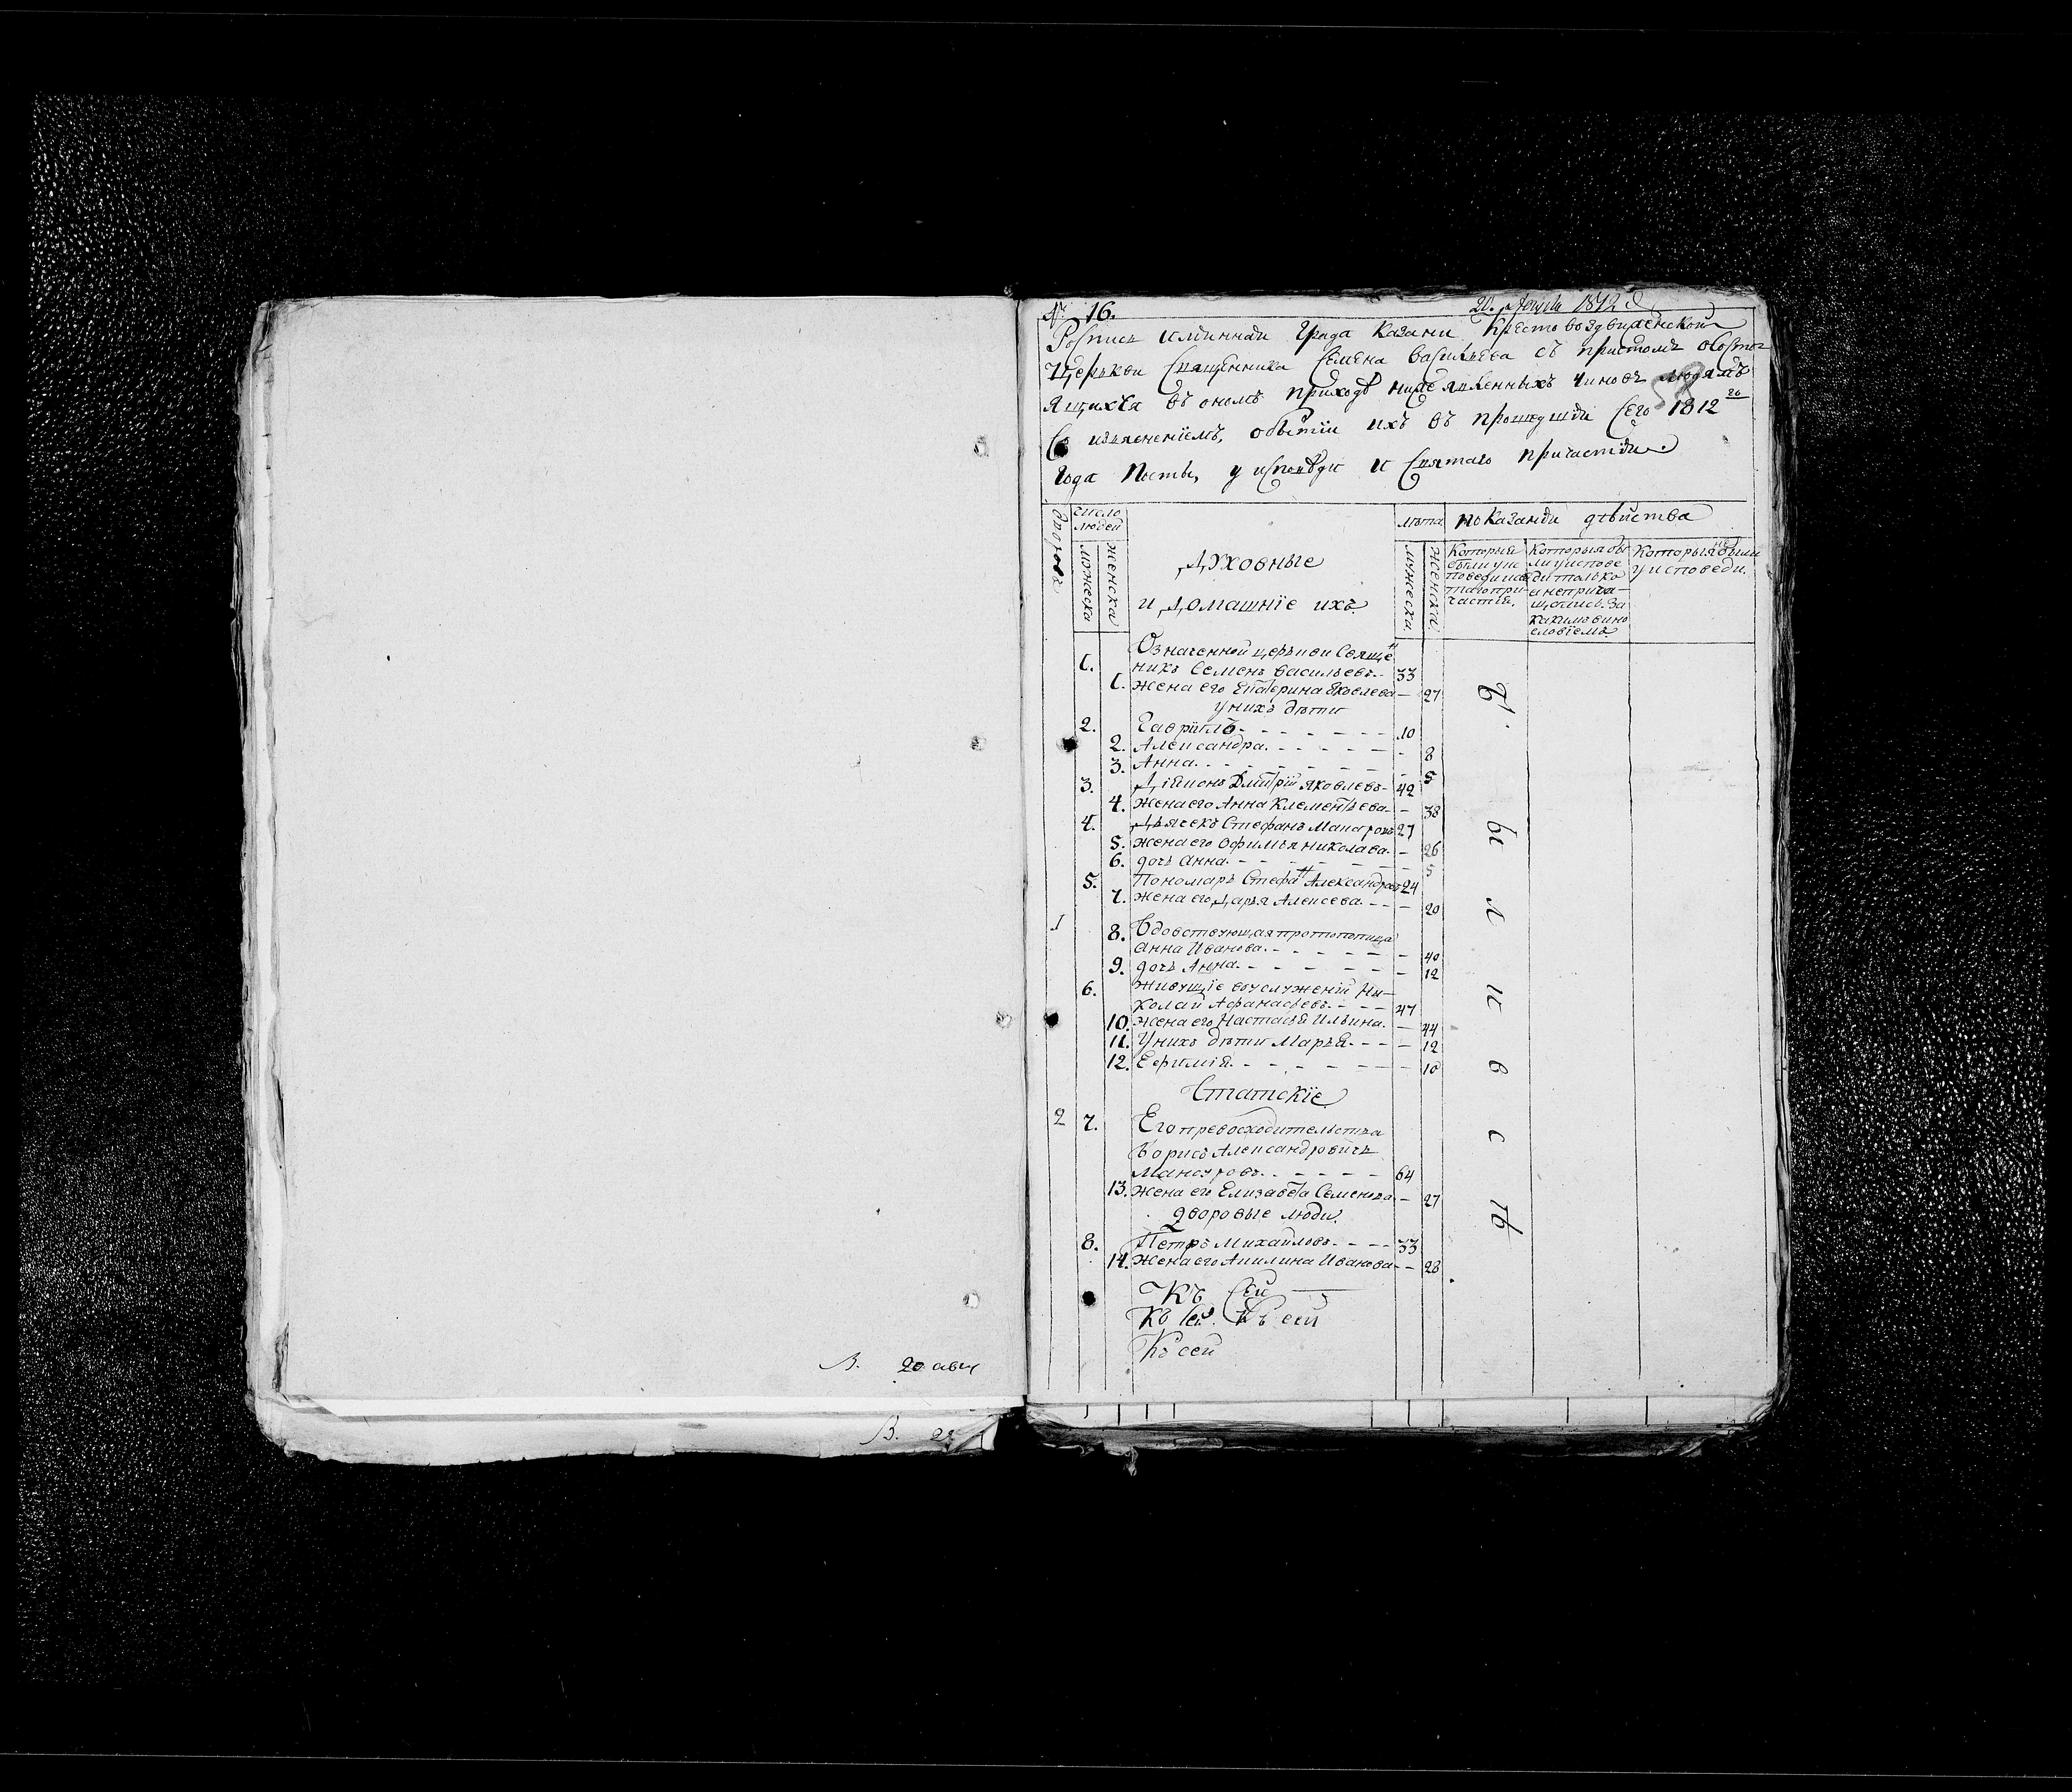 В. 20 авгу
В. 22
№ 16.
20. Августа 1812
Роспись имяннай града Казани Крестовоздвиженской
церькви священника Семена Васильева съ притчомъ обофто-
ящихся въ ономъ приходѣ нижеявленныхъ чиновъ людямъ
58
Со изъяснениемъ, обытіи ихъ въ прошедшіи сего 1812 го
года посты, у исповѣди и святаго причастіи.
дворовъ
число людей
можеска
женска
Духовные
и Домашніе ихъ
лѣта
мужеска
женска
показаніи дѣйства
Которыя были уис поведи исвя таго при-частія.
Которыя бы ли уиспове ди только анеприча-щались. За какимъ вино словіемъ
Которыя не были уисповеди.
1. Означенной церькви Свяще н
никъ Семенъ Васильевъ. 33
1. жена его Екатерина Яковлева — 27
у нихъ дѣти
2. Гаврiилъ. - - - - 10
2. Александра. - - - - 8
3. Анна. - - - - 5
3. Діяконъ Дмитрій Яковлевъ - 42
4. Жена его Анна Клементьева. - 38
4. Дьячекъ Стефанъ Макаровъ 27
5. жена его Офимья Николаева. - 26
6. дочь Анна. - - - - 5
5. Пономарь Стефан Александровъ 24
7. жена его Дарья Алексеева. - - - 20
1 8. Вдовствующая протопопица
Анна Иванова. - - - - 40
9. дочь Анна. - - - - 12
6. Живущіе воуслуженіи Ни-
колай Афанасьевъ. - - - 47
10. жена его Настасья Ильина. - 44
11. У нихъ дѣти Марья. - - - 12
12. Ефимія. - - - - 10
Статскіе
2 7. Его превосходительства
Борисъ Александровичь
Мансуровъ. - - - - 64
13. жена его Елизавета Семенова - 27
дворовые люди.
8. Петръ Михайловъ. - - - 33
14. жена его Акилина Иванова - - 28
Къ сей
Къ сей. Къ сей
Къ сей